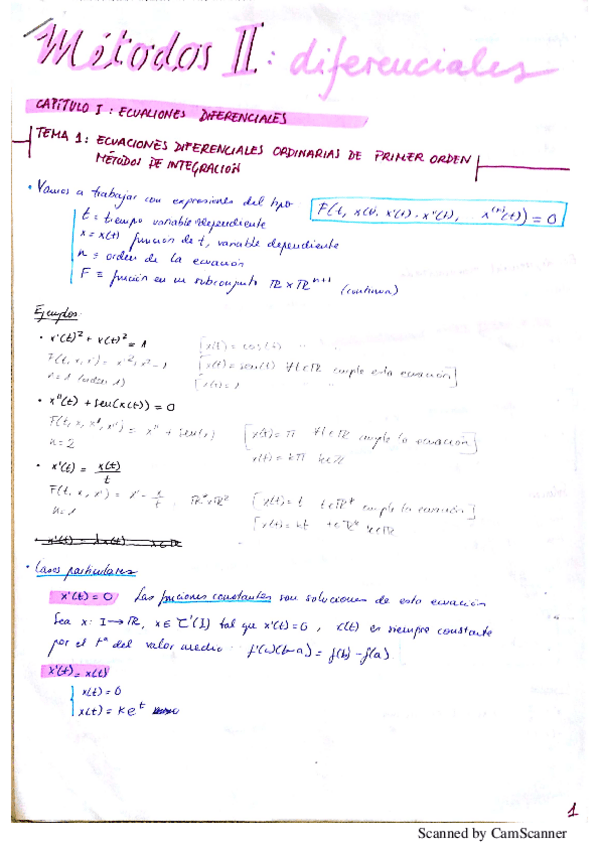 Métodos II: diferenciales
CAPÍTULO I: ECUACIONES DIFERENCIALES
TEMA 1: ECUACIONES DIFERENCIALES ORDINARIAS DE PRIMER ORDEN
MÉTODOS DE INTEGRACIÓN
• Vamos a trabajar con expresiones del tipo F(t, x(t), x'(t), x''(t), x⁽ⁿ⁾(t)) = 0
t = tiempo variable independiente
x = x(t) función de t, variable dependiente
n = orden de la ecuación
F ≡ función en un subconjunto ℝ x ℝⁿ⁺¹ (continua)
Ejemplos:
• x'(t)² + x(t)² = 1 [x(t) = cos(t)
F(t, x, x') = x'² + x² - 1 [x(t) = sen(t) ∀t∈ℝ cumple esta ecuación]
n = 1 (orden 1) [x(t) = 1
• x''(t) + sen(x(t)) = 0
F(t, x, x', x'') = x'' + sen(x) [x(t) = π ∀t∈ℝ cumple la ecuación]
n = 2 x(t) = kπ k∈ℤ
• x'(t) = x(t)/t
F(t, x, x') = x' - x/t [x(t) = t t∈ℝ⁺ cumple la ecuación]
n = 1 [x(t) = kt t∈ℝ⁺ k∈ℝ
• Casos particulares
x'(t) = 0 Las funciones constantes son soluciones de esta ecuación
Sea x: I → ℝ, x ∈ C'(I) tal que x'(t) = 0, x(t) es siempre constante
por el tª del valor medio: f'(c)(b-a) = f(b) - f(a)
x'(t) = x(t)
x(t) = 0
x(t) = k eᵗ
1
Scanned by CamScanner